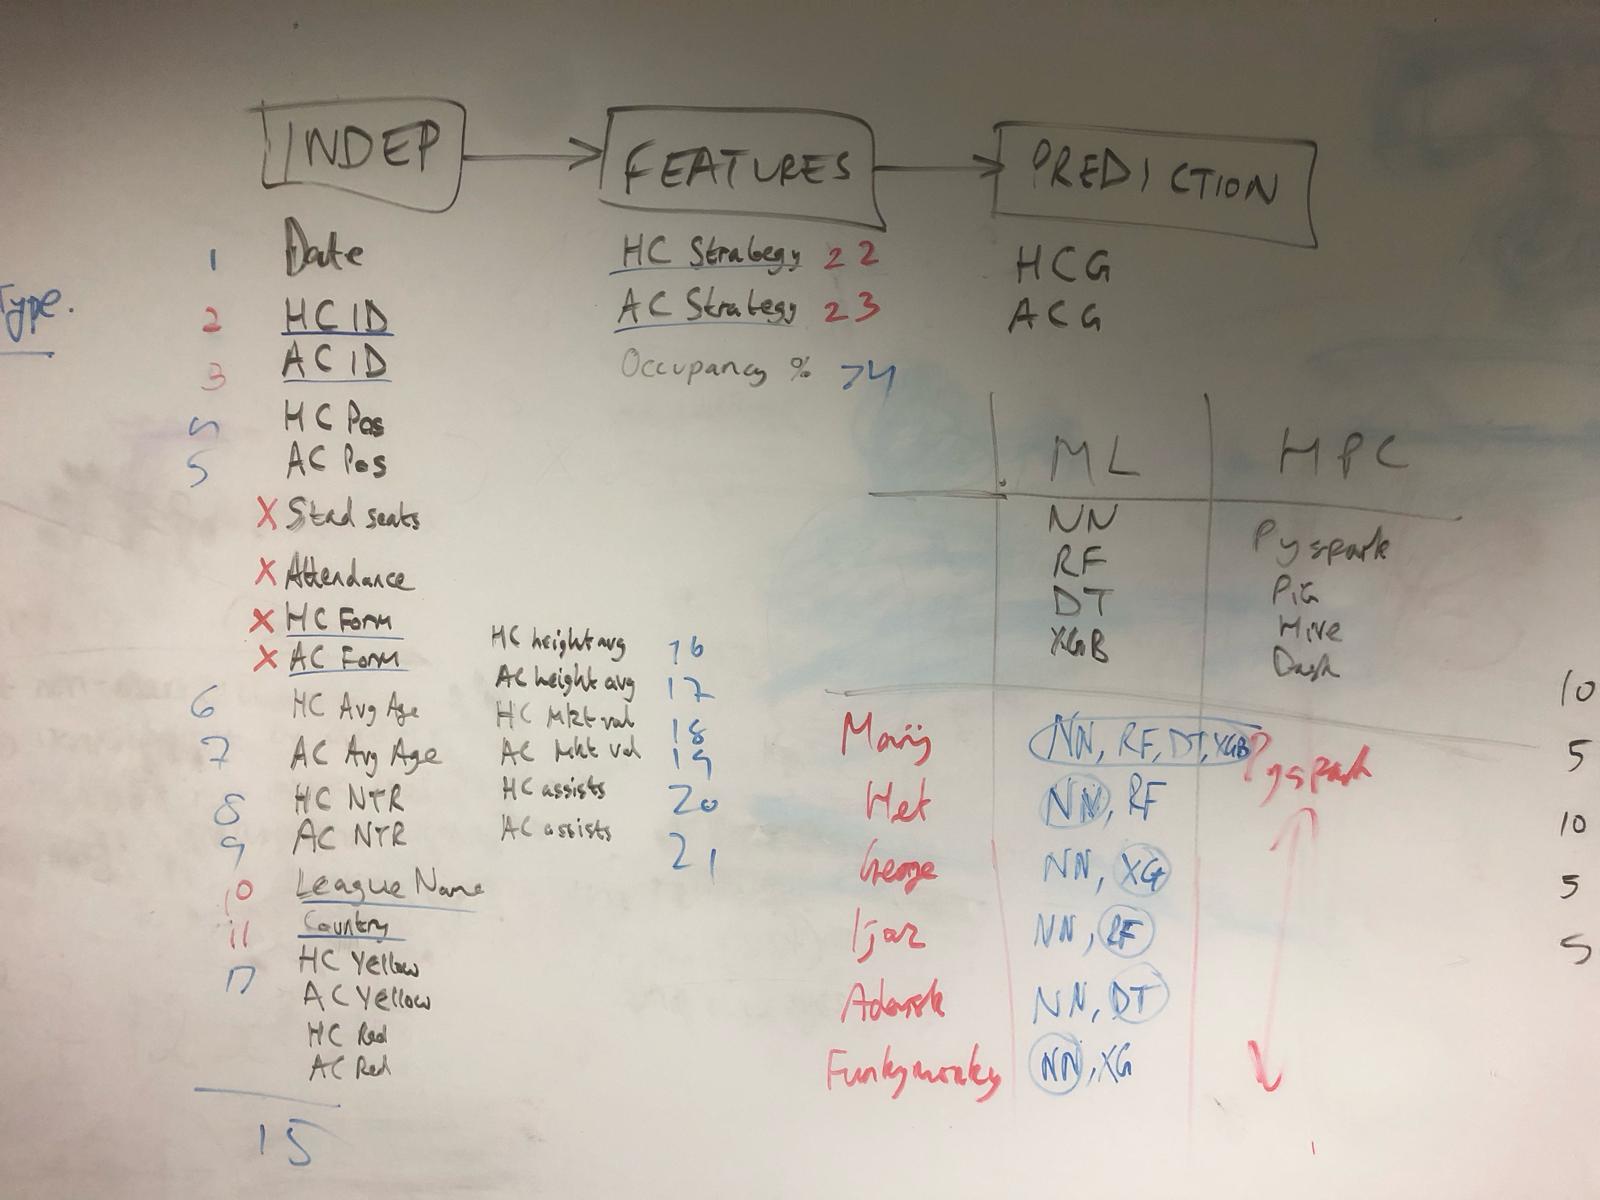 INDEP
FEATURES
PREDICTION
Type.
1 Date
2 HC ID
3 AC ID
4 HC Pos
5 AC Pos
X Stad seats
X Attendance
X HC Form
X AC Form
6 HC Avg Age
7 AC Avg Age
8 HC NTR
9 AC NTR
10 League Name
11 Country
12 HC Yellow
AC Yellow
HC Red
AC Red
15
HC height avg 16
AC height avg 17
HC Mkt val 18
AC Mkt val 19
HC assists 20
AC assists 21
HC Strategy 22
AC Strategy 23
Occupancy % 24
HCG
ACG
ML HPC
NN Pyspark
RF Pig
DT Hive
XGB Dask
NN, RF, DT, XGB Pyspark
Het NN, RF
George NN, XG
Ijaz NN, RF
Adarsh NN, DT
Funkymonky NN, XG
10
5
10
5
5